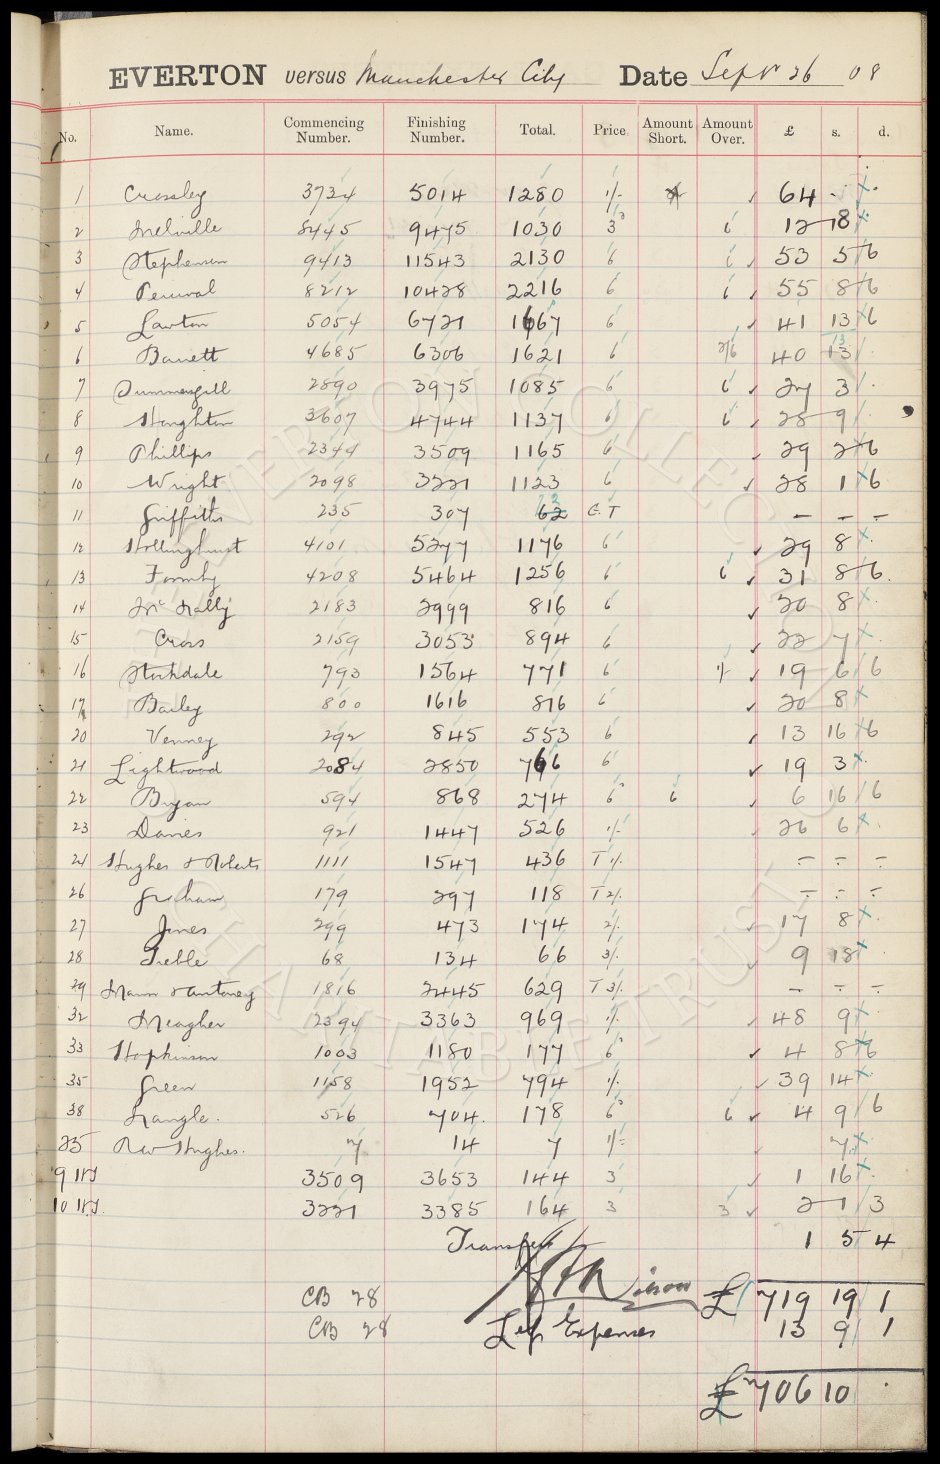 EVERTON versus Manchester City Date Sept 26 08
No. Name. Commencing Number. Finishing Number. Total. Price. Amount Short. Amount Over. £ s. d.
1 Crossley 3734 5014 1280 1/- 64 - -
2 Melville 8445 9475 1030 3 6 12 18 -
3 Stephenson 9413 11543 2130 6 6 53 5 6
4 Percival 8212 10428 2216 6 6 55 8 6
5 Lawton 5054 6721 1667 6 41 13 6
6 Barrett 4685 6306 1621 6 2/6 40 13
7 Summersgill 2890 3975 1085 6 6 27 3 -
8 Houghton 3607 4744 1137 6 6 28 9 -
9 Phillips 2344 3509 1165 6 29 2 6
10 Wright 2098 3221 1123 6 28 1 6
11 Griffiths 235 307 62 C.T - - -
12 Hollinghurst 4101 5277 1176 6 29 8 -
13 Formby 4208 5464 1256 6 6 31 8 6
14 McNally 2183 2999 816 6 20 8 -
15 Cross 2159 3053 894 6 22 7 -
16 Stockdale 793 1564 771 6 1/- 19 6 6
17 Bailey 800 1616 816 6 20 8 -
20 Venney 292 845 553 6 13 16 6
21 Lightwood 2084 2850 766 6 19 3 -
22 Bryan 594 868 274 6 6 6 16 6
23 Davies 921 1447 526 1/- 26 6 -
24 Hughes & Roberts 1111 1547 436 T 1/- - - -
26 Graham 179 297 118 T 2/- - - -
27 Jones 299 473 174 2/- 17 8 -
28 Treble 68 134 66 3/- 9 18 -
29 Mann & Mantoney 1816 2445 629 T 3/- - - -
32 Meagher 2394 3363 969 1/- 48 9 -
33 Hopkinson 1003 1180 177 6 4 8 6
35 Green 1158 1952 794 1/- 39 14 -
38 Nangle. 526 704. 178 6 6 4 9 6
25 Rev Hughes. 7 14 7 1/- 7 -
9 3509 3653 144 3 1 16 -
10 3221 3385 164 3 3 2 1 3
Transfers 1 5 4
CB 28 £ 719 19 1
CB 28 Less Expenses 13 9 1
£ 706 10 .
EVERTON COLLECTION
CHARITABLE TRUST